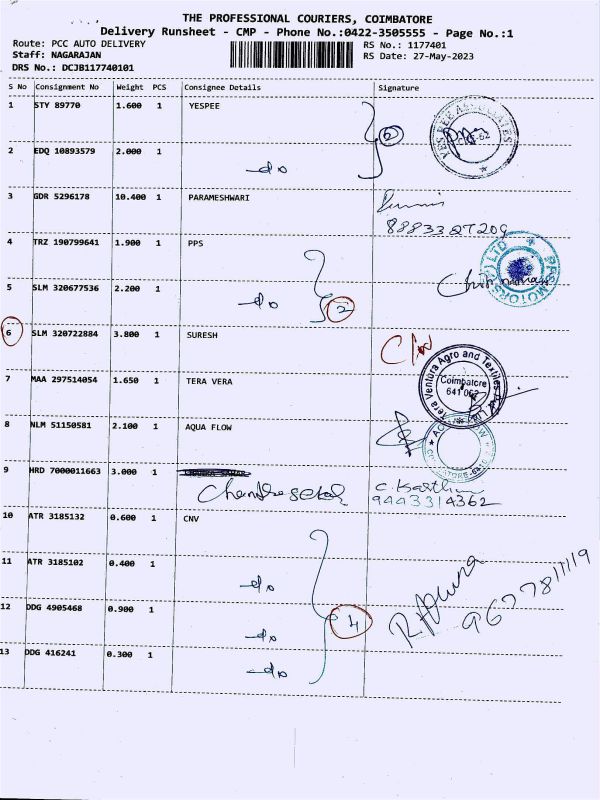 THE PROFESSIONAL COURIERS, COIMBATORE
Delivery Runsheet - CMP - Phone No.:0422-3505555 - Page No.:1
Route: PCC AUTO DELIVERY RS No.: 1177401
Staff: NAGARAJAN RS Date: 27-May-2023
DRS No.: DCJB117740101
S No Consignment No Weight PCS Consignee Details Signature
1 STY 89770 1.600 1 YESPEE
YES PEE ASSOCIATES
2 EDQ 10893579 2.000 1
-do
3 GDR 5296178 10.400 1 PARAMESHWARI
8883327209
4 TRZ 190799641 1.900 1 PPS
PPS MOTORS (P) LTD
5 SLM 320677536 2.200 1
-do 2
6 SLM 320722884 3.800 1 SURESH
7 MAA 297514054 1.650 1 TERA VERA
Tera Ventora Agro and Textiles Pvt Ltd
Coimbatore
641 062
8 NLM 51150581 2.100 1 AQUA FLOW
9 HRD 7000011663 3.000 1
Chandrasekar C. Karthi
9443314362
10 ATR 3185132 0.600 1 CNV
11 ATR 3185102 0.400 1
-do
12 DDG 4905468 0.900 1
-do 4
9677811119
13 DDG 416241 0.300 1
-do